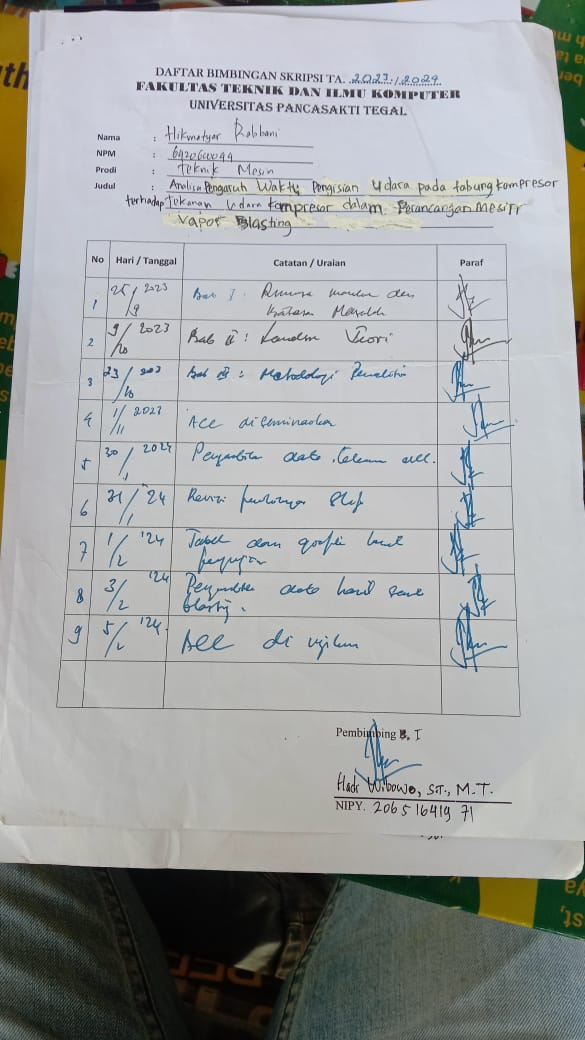 DAFTAR BIMBINGAN SKRIPSI TA. 2023/2024
FAKULTAS TEKNIK DAN ILMU KOMPUTER
UNIVERSITAS PANCASAKTI TEGAL
Nama : Hikmatyar Rabbani
NPM : 6420600044
Prodi : Teknik Mesin
Judul : Analisa Pengaruh Waktu Pengisian Udara pada tabung kompresor
terhadap Tekanan Udara Kompresor dalam Perancangan Mesin
Vapor Blasting
No Hari / Tanggal Catatan / Uraian Paraf
1 25/9 2023 Bab I : Rumusan masalah dan
Batasan Masalah
2 9/10 2023 Bab II : Landasan Teori
3 23/10 Bab III : Metodologi Penelitian
4 1/11 2023 Acc di seminarkan
5 30/1 2024 Pengambilan data
6 31/1 '24 Revisi
7 1/2 '24 Tabel dan grafik hasil
pengujian
8 3/2 '24 Pengambilan data hasil
blasting.
9 5/2 '24 Acc di ujikan
Pembimbing I
Hadi Wibowo, S.T., M.T.
NIPY. 20651641971